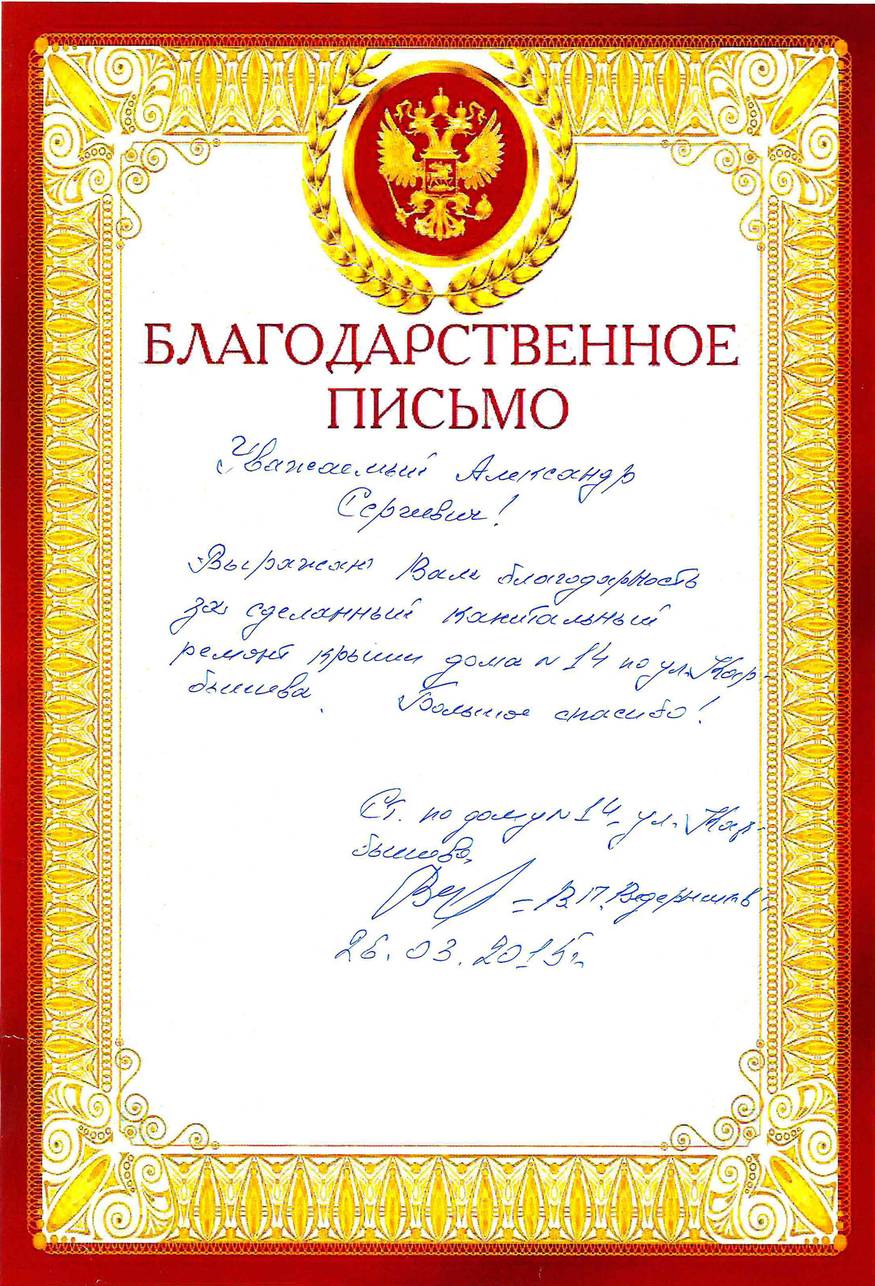 БЛАГОДАРСТВЕННОЕ
ПИСЬМО
Уважаемый Александр
Сергиевич!
Выражаю Вам благодарность
за сделанный капитальный
ремонт крыши дома N 14 по ул. Кар-
бышева. Большое спасибо!
Ст. по дому N 14 ул. Кар-
бышева,
В.П. Ведерников
26.03.2015г.